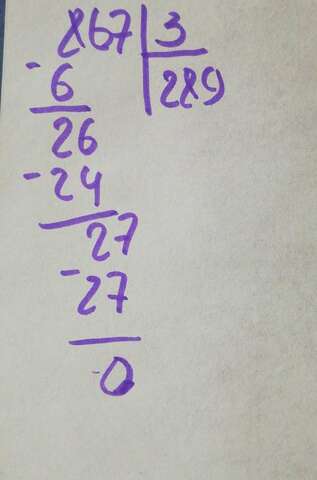 867 3
-6 289
26
-24
27
-27
0